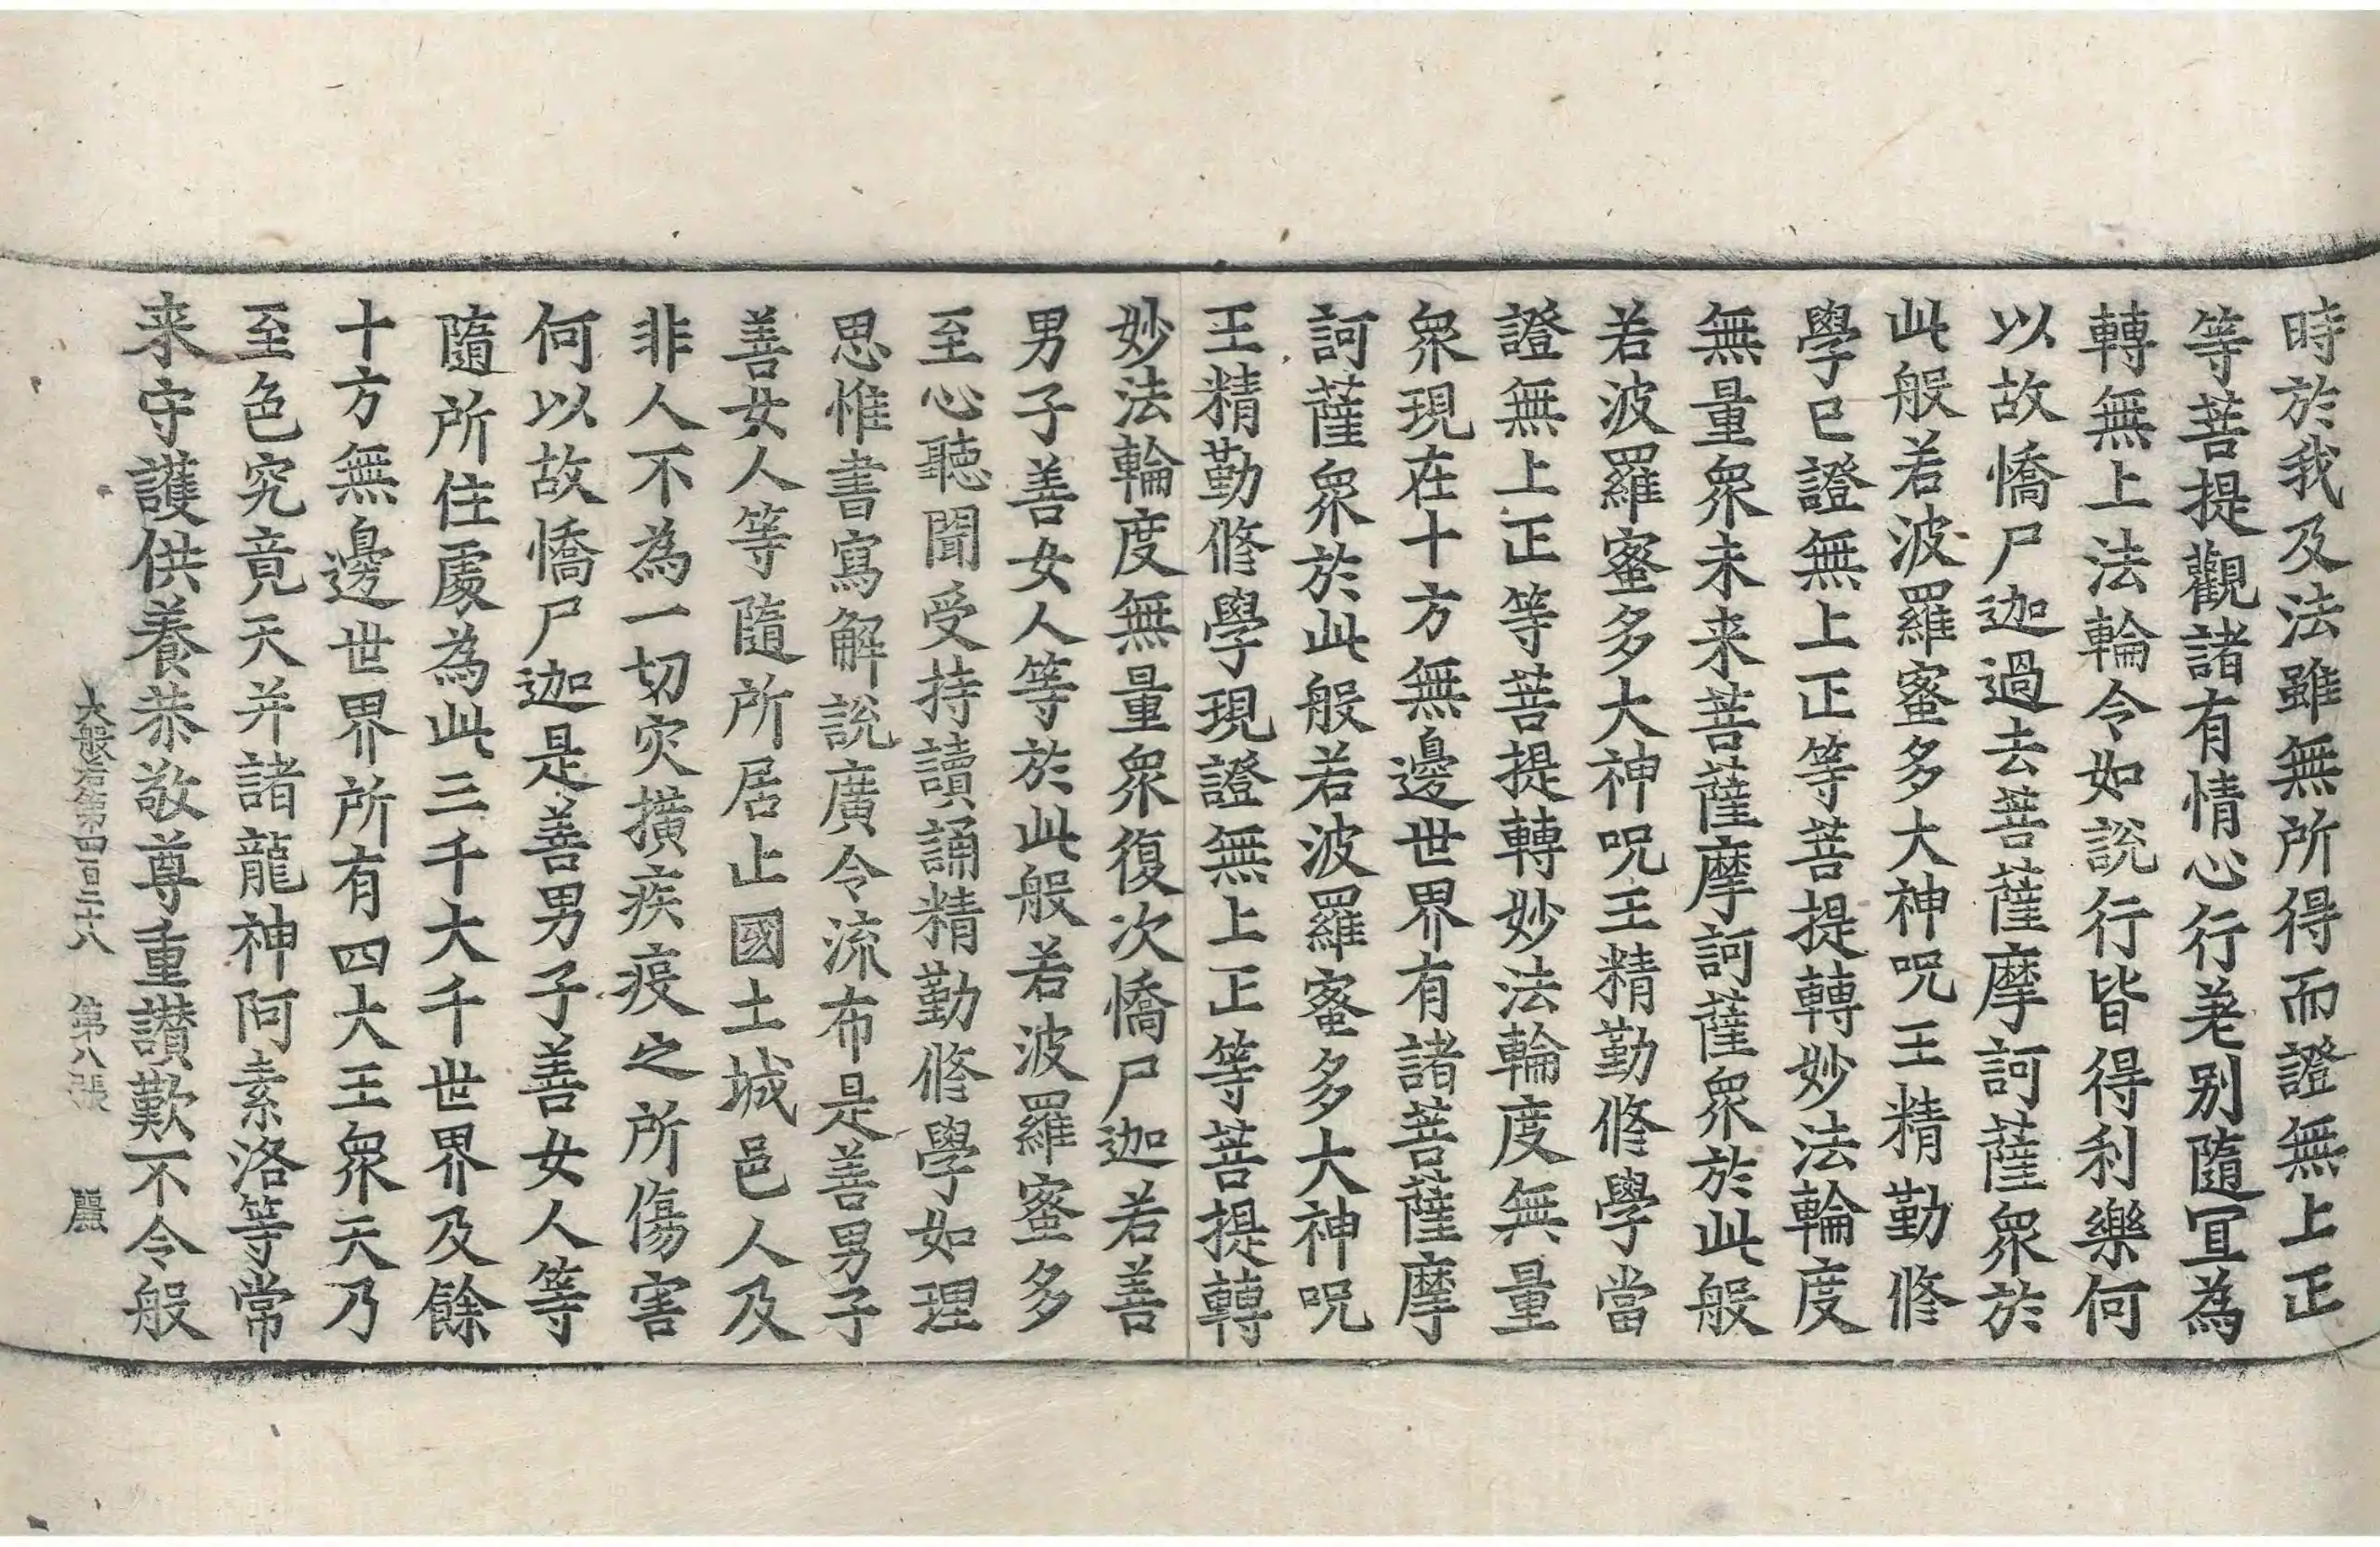 時於我及法雖無所得而證無上正
等菩提觀諸有情心行差别隨冝為
轉無上法輪令如說行皆得利樂何
以故憍尸迦過去菩薩摩訶薩衆於
此般若波羅蜜多大神呪王精勤修
學已證無上正等菩提轉妙法輪度
無量衆未来菩薩摩訶薩衆於此般
若波羅蜜多大神呪王精勤修學當
證無上正等菩提轉妙法輪度無量
衆現在十方無邊世界有諸菩薩摩
訶薩衆於此般若波羅蜜多大神呪
王精勤修學現證無上正等菩提轉
妙法輪度無量衆復次憍尸迦若善
男子善女人等於此般若波羅蜜多
至心聽聞受持讀誦精勤修學如理
思惟書寫解說廣令流布是善男子
善女人等隨所居止國土城邑人及
非人不為一切灾撗疾疫之所傷害
何以故憍尸迦是善男子善女人等
隨所住處為此三千大千世界及餘
十方無邊世界所有四大王衆天乃
至色究竟天并諸龍神阿素洛等常
来守護供養恭敬尊重讃歎不令般
大般若第四百二十八 第八張 麗